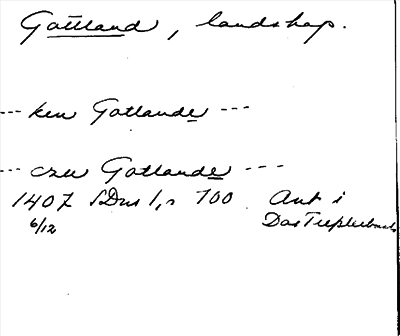 Gottland, landskap.
--- ken Gotlande ---
--- czu Gotlande ---
1407 SDns 1, s 700 Ant i
6/12 Das Treplerbuch